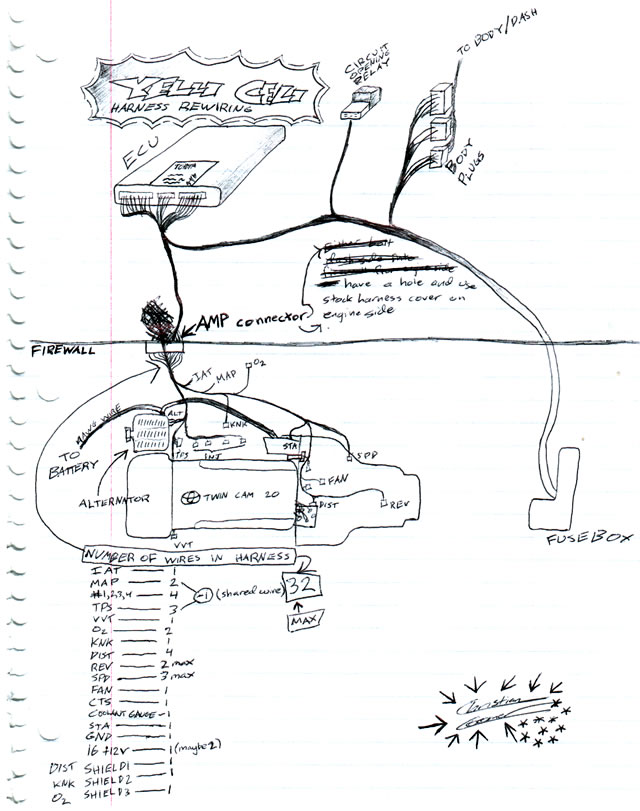 YELLO CELI
HARNESS REWIRING
CIRCUIT
OPENING
RELAY
TO BODY/DASH
BODY
PLUGS
ECU
have a hole and use
stock harness cover on
engine side
AMP connector
FIREWALL
IAT
MAP
O2
ALT
KNK
TPS
INJ
STA
SPD
FAN
DIST
REV
TO
MAIN WIRE
BATTERY
ALTERNATOR
TWIN CAM 20
VVT
FUSEBOX
NUMBER OF WIRES IN HARNESS
IAT 1
MAP 2
#1,2,3,4 4
TPS 3
-1 (shared wire)
32
MAX
VVT 1
O2 2
KNK 1
DIST 4
REV 2 max
SPD 3 max
FAN 1
CTS 1
COOLANT GAUGE - 1
STA 1
GND 1
IG +12V 1 (maybe 2)
DIST SHIELD1 1
KNK SHIELD2 1
O2 SHIELD3 1
Christian